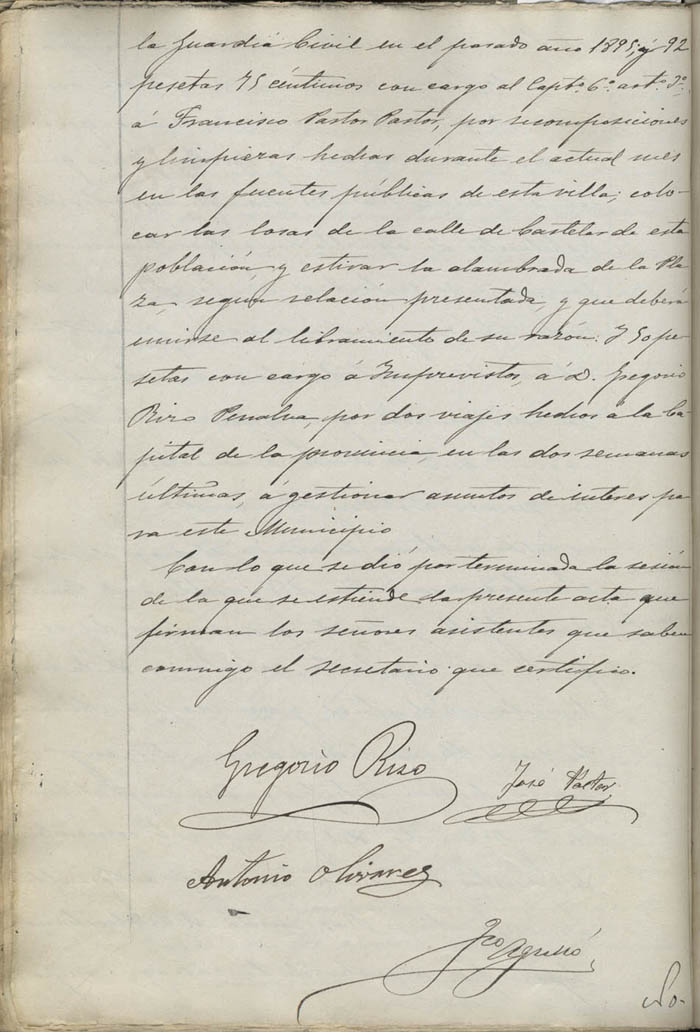 la Guardia Civil en el pasado año 1895; y 92
pesetas 75 céntimos con cargo al Capto. 6º arto. 3º
á Francisco Pastor Pastor, por recomposiciones
y limpiezas hechas durante el actual mes
en las fuentes públicas de esta villa; colo-
car las losas de la calle de Castelar de esta
población, y estirar la alambrada de la Pla-
za, segun relación presentada, y que deberá
unirse al libramiento de su razón: Y 50 pe-
setas con cargo á Imprevistos, á D. Gregorio
Rizo Penalva, por dos viajes hechos a la Ca-
pital de la provincia, en las dos semanas
últimas, á gestionar asuntos de interes pa-
ra este Municipio
Con lo que se dió por terminada la sesión
de la que se estiende la presente acta que
firman los señores asistentes que saben
conmigo el secretario que certifico.
Gregorio Rizo
José Pastor
Antonio Olivares
Fco
No-